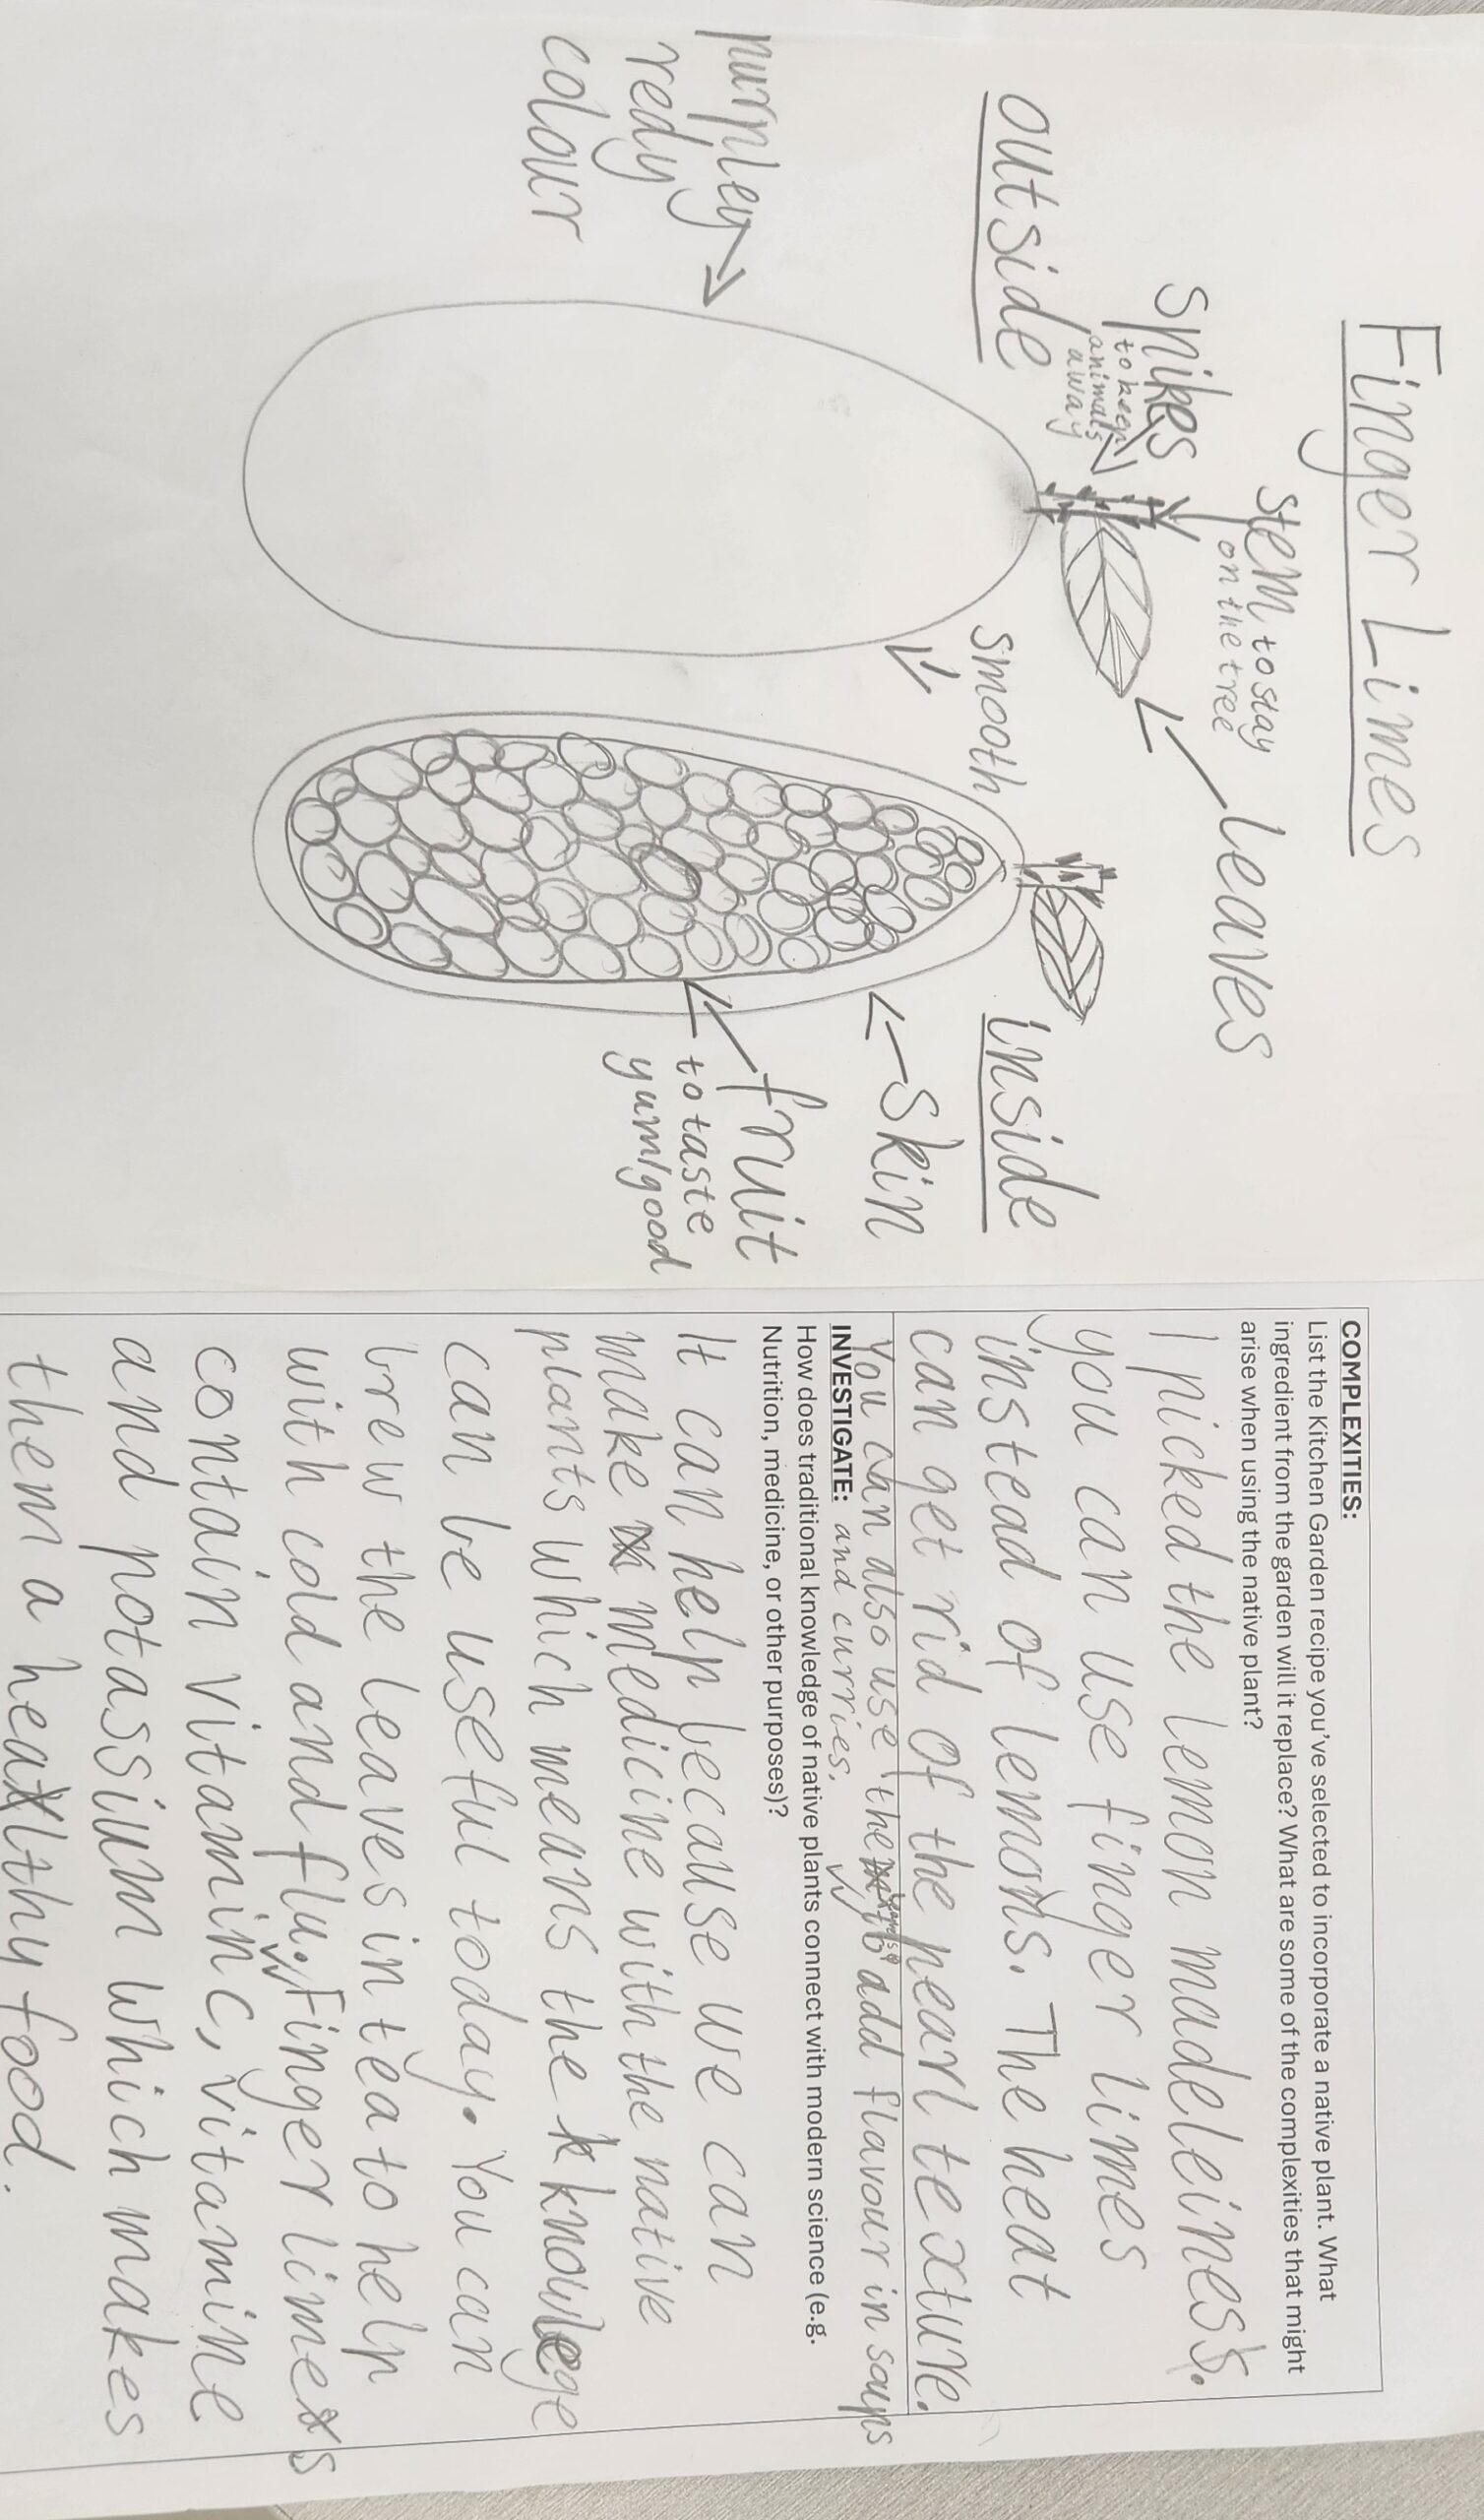 Finger Limes
stem to stay
on the tree
leaves
spikes
to keep
animals
away
outside
smooth
inside
skin
purpley
redy
colour
fruit
to taste
yum/good
COMPLEXITIES:
List the Kitchen Garden recipe you've selected to incorporate a native plant. What
ingredient from the garden will it replace? What are some of the complexities that might
arise when using the native plant?
I picked the lemon madeleines.
you can use finger limes
instead of lemons. The heat
can get rid of the pearl texture.
You can also use the to add flavour in soups
and curries.
INVESTIGATE:
How does traditional knowledge of native plants connect with modern science (e.g.
Nutrition, medicine, or other purposes)?
It can help because we can
make medicine with the native
plants which means the knowlege
can be useful today. You can
brew the leaves in tea to help
with cold and flu. Finger limes
contain vitamin c, vitamine
and potassium which makes
them a healthy food.